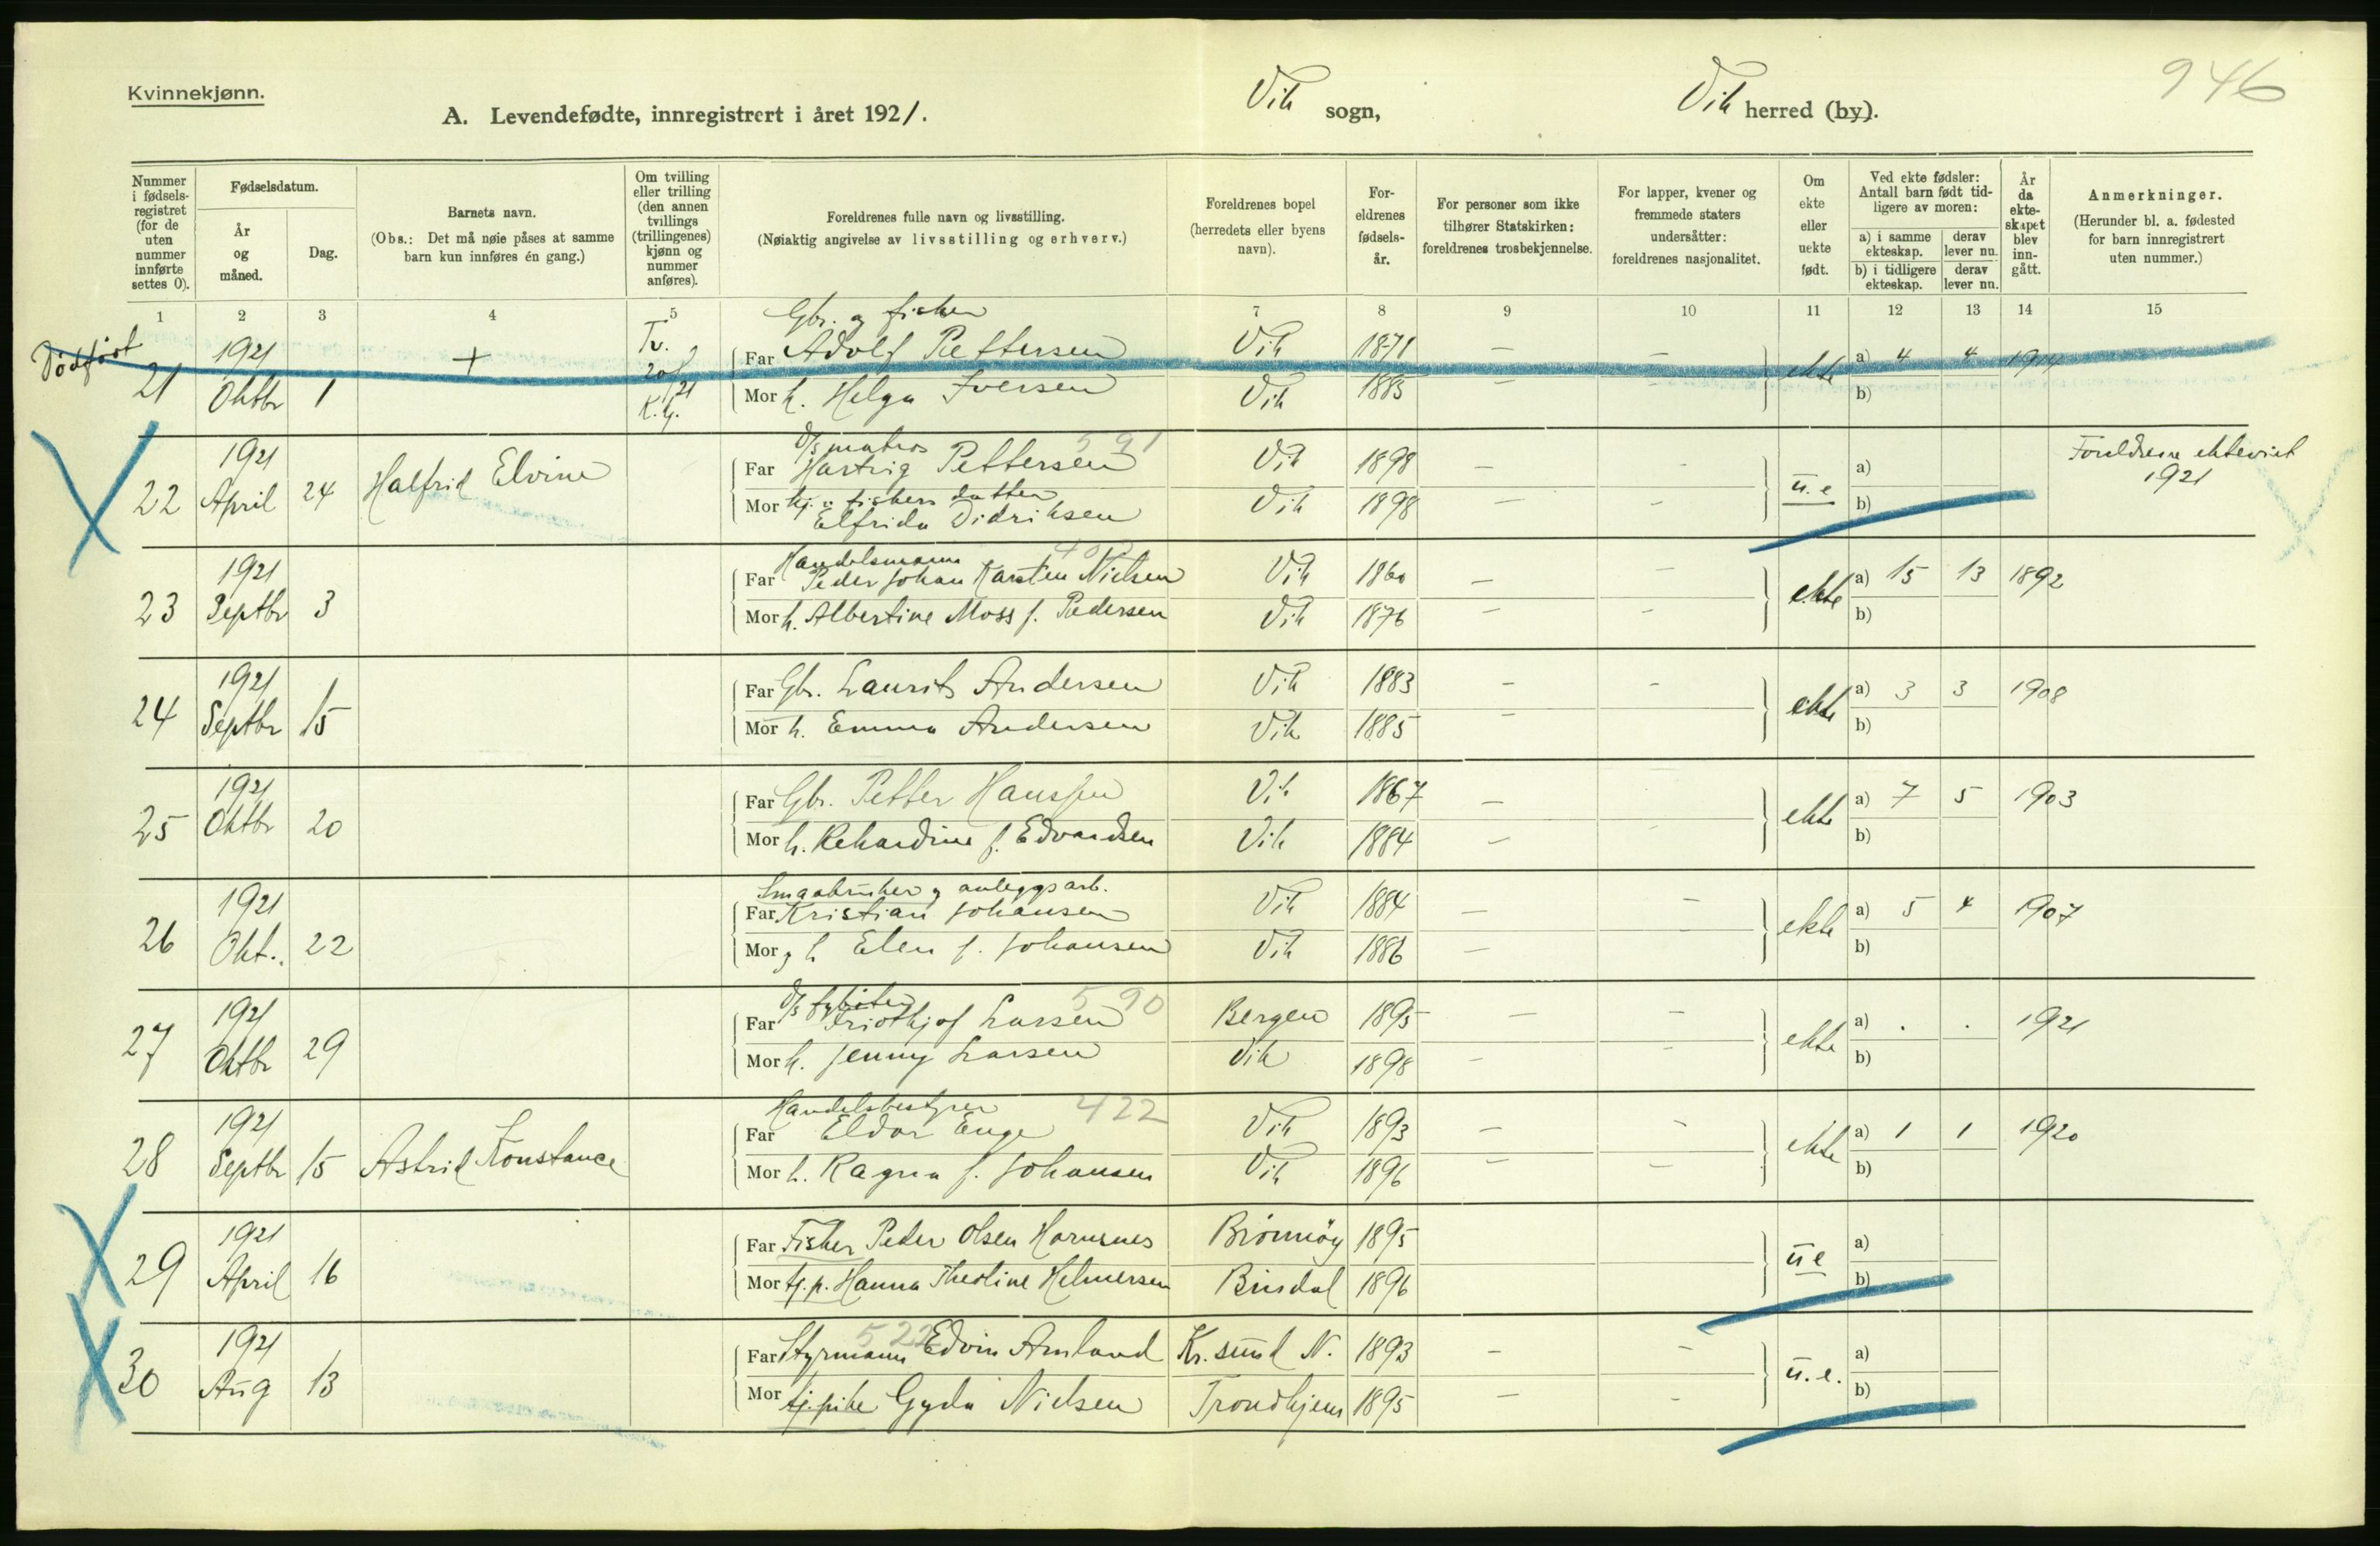 Kvinnekjønn.
A. Levendefødte, innregistrert i året 1921.
Vik sogn,
Vik herred (by).
946
Nummer i fødsels-registret (for de uten nummer innførte settes 0).
Fødselsdatum.
År og måned.
Dag.
Barnets navn.
(Obs.: Det må nøie påses at samme barn kun innføres én gang.)
Om tvilling eller trilling (den annen tvillings (trillingenes) kjønn og nummer anføres).
Foreldrenes fulle navn og livsstilling.
(Nøiaktig angivelse av livsstilling og erhverv.)
Foreldrenes bopel (herredets eller byens navn).
For-eldrenes fødsels-år.
For personer som ikke tilhører Statskirken: foreldrenes trosbekjennelse.
For lapper, kvener og fremmede staters undersåtter: foreldrenes nasjonalitet.
Om ekte eller uekte født.
Ved ekte fødsler: Antall barn født tid-ligere av moren:
a) i samme ekteskap.
derav lever nu.
b) i tidligere ekteskap.
derav lever nu.
År da ekte-skapet blev inn-gått.
Anmerkninger.
(Herunder bl. a. fødested for barn innregistrert uten nummer.)
1 2 3 4 5 7 8 9 10 11 12 13 14 15
Dødfødt
Gbr. og fisker
21 1921 Oktbr 1 + Tv. K.kj.
Far Adolf Pettersen Vik 1871 — — ekte a) 4 4 1914
Mor h. Helga Iversen Vik 1885 — - b)
D/s matros 591
22 1921 April 24 Halfrid Elvine
Far Hartvig Pettersen Vik 1898 — - u.e a) Foreldrene ekteviet 1921
Mor fiskers datter Elfrida Didriksen Vik 1898 — - b)
Handelsmann
23 1921 Septbr 3
Far Peder Johan Karsten Nielsen Vik 1860 — — ekte a) 15 13 1892
Mor h. Albertine Moss f. Pedersen Vik 1876 — - b)
24 1921 Septbr 15
Far Gbr. Laurits Andersen Vik 1883 — - ekte a) 3 3 1908
Mor h. Emma Andersen Vik 1885 — b)
25 1921 Oktbr 20
Far Gbr. Petter Hanssen Vik 1867 — — ekte a) 7 5 1903
Mor h. Rekardine f. Edvardsen Vik 1884 — - b)
Smaabruker og anleggsarb.
26 1921 Okt. 22
Far Kristian Johansen Vik 1884 — — ekte a) 5 4 1907
Mor og h Elen f. Johansen Vik 1886 — - b)
D/s fyrbøter 590
27 1921 Oktbr 29
Far Fridthjof Larsen Bergen 1895 — — ekte a) . . 1921
Mor h. Jenny Larsen Vik 1898 — - b)
Handelsbestyrer 422
28 1921 Septbr 15 Astrid Konstance
Far Eldor Enge Vik 1893 — - ekte a) 1 1 1920
Mor h. Ragna f. Johansen Vik 1896 — — b)
29 1921 April 16
Far Fisker Peder Olsen Hornsnes Brønnøy 1895 ue a)
Mor tj.p. Hanna Theoline Helmersen Bindal 1896 b)
522
30 1921 Aug 13
Far Styrmann Edvin Amland Kr.sund N. 1893 — — u.e. a)
Mor tj.pike Gyda Nielsen Trondhjem 1895 — - b)